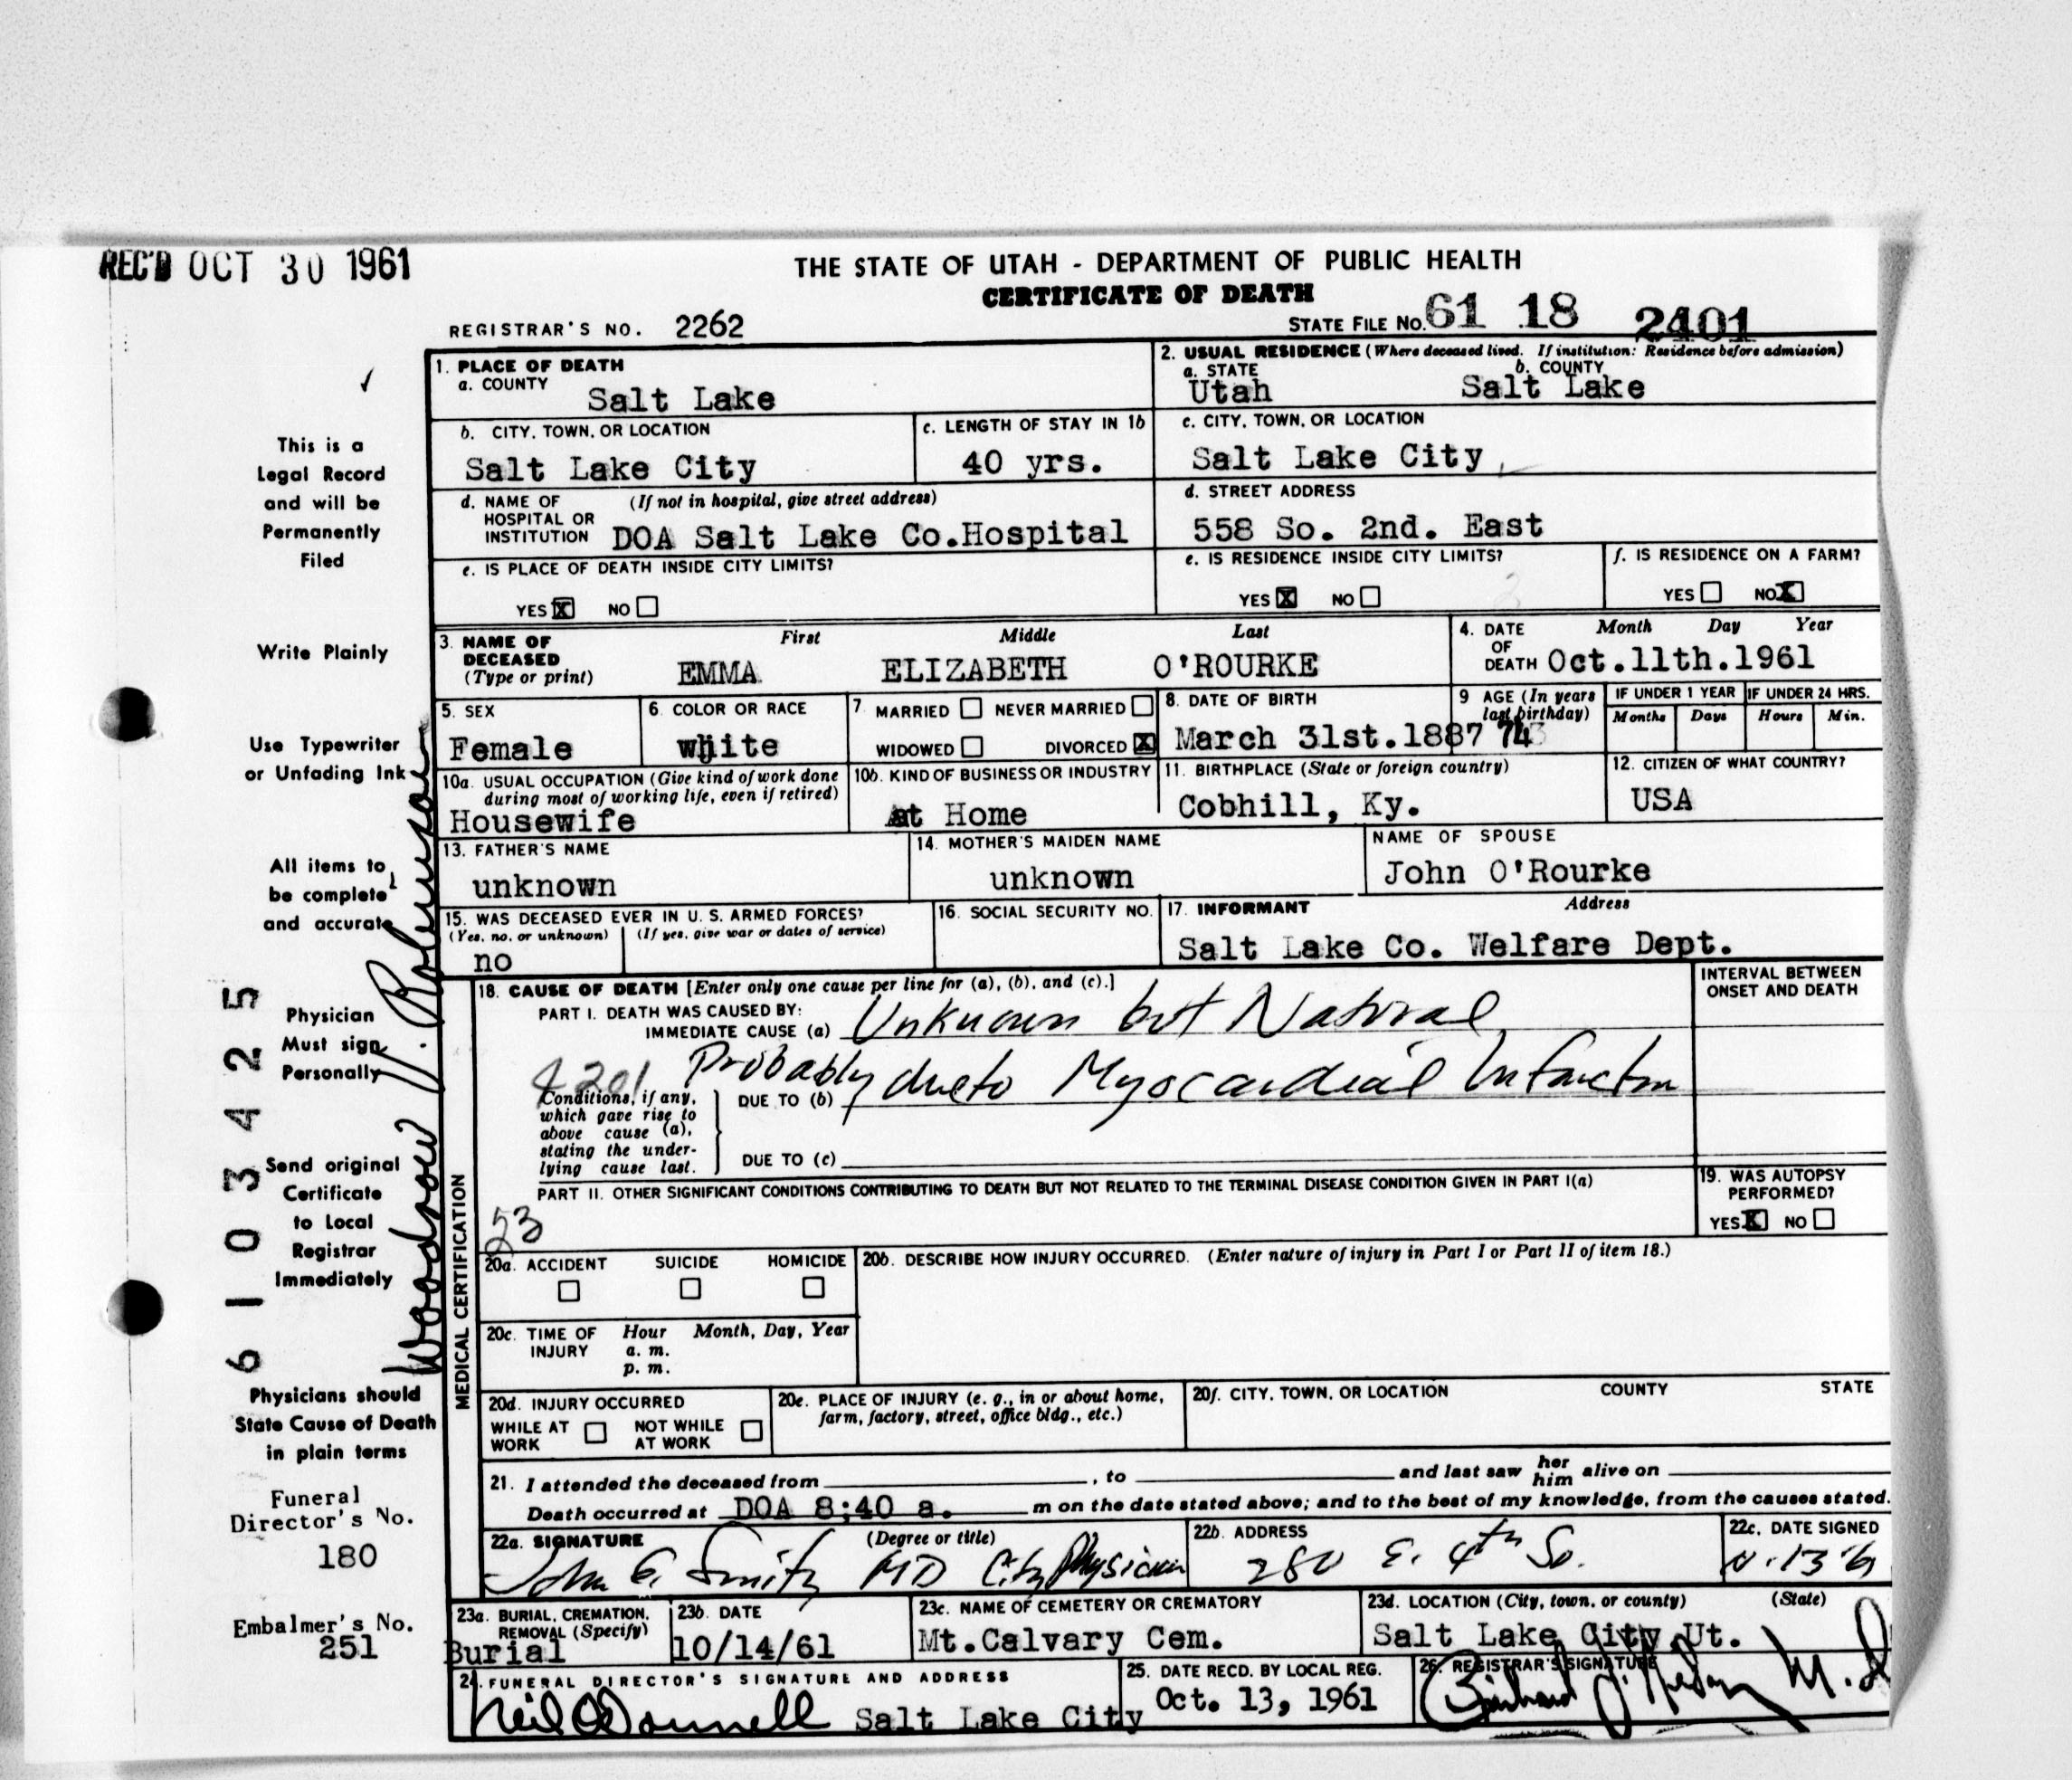 REC'D OCT 30 1961
THE STATE OF UTAH - DEPARTMENT OF PUBLIC HEALTH
CERTIFICATE OF DEATH
REGISTRAR'S NO. 2262
STATE FILE NO. 61 18 2401
1. PLACE OF DEATH
a. COUNTY
Salt Lake
2. USUAL RESIDENCE (Where deceased lived. If institution: Residence before admission)
a. STATE
Utah
b. COUNTY
Salt Lake
b. CITY, TOWN, OR LOCATION
Salt Lake City
c. LENGTH OF STAY IN 1b
40 yrs.
c. CITY, TOWN, OR LOCATION
Salt Lake City
d. NAME OF HOSPITAL OR INSTITUTION
(If not in hospital, give street address)
DOA Salt Lake Co.Hospital
d. STREET ADDRESS
558 So. 2nd. East
e. IS PLACE OF DEATH INSIDE CITY LIMITS?
YES X NO
e. IS RESIDENCE INSIDE CITY LIMITS?
YES X NO
f. IS RESIDENCE ON A FARM?
YES NO X
3. NAME OF DECEASED
(Type or print)
First Middle Last
EMMA ELIZABETH O'ROURKE
4. DATE OF DEATH
Month Day Year
Oct.11th.1961
5. SEX
Female
6. COLOR OR RACE
white
7. MARRIED NEVER MARRIED
WIDOWED DIVORCED X
8. DATE OF BIRTH
March 31st.1887
9 AGE (In years last birthday)
74
IF UNDER 1 YEAR
Months Days
IF UNDER 24 HRS.
Hours Min.
10a. USUAL OCCUPATION (Give kind of work done
during most of working life, even if retired)
Housewife
10b. KIND OF BUSINESS OR INDUSTRY
at Home
11. BIRTHPLACE (State or foreign country)
Cobhill, Ky.
12. CITIZEN OF WHAT COUNTRY?
USA
13. FATHER'S NAME
unknown
14. MOTHER'S MAIDEN NAME
unknown
NAME OF SPOUSE
John O'Rourke
15. WAS DECEASED EVER IN U. S. ARMED FORCES?
(Yes, no, or unknown) (If yes, give war or dates of service)
no
16. SOCIAL SECURITY NO.
17. INFORMANT Address
Salt Lake Co. Welfare Dept.
MEDICAL CERTIFICATION
18. CAUSE OF DEATH [Enter only one cause per line for (a), (b), and (c).]
INTERVAL BETWEEN
ONSET AND DEATH
PART I. DEATH WAS CAUSED BY:
IMMEDIATE CAUSE (a) Unknown but Natural
4201 Probably due to Myocardial Infarction
DUE TO (b)
Conditions, if any,
which gave rise to
above cause (a),
stating the under-
lying cause last.
DUE TO (c)
PART II. OTHER SIGNIFICANT CONDITIONS CONTRIBUTING TO DEATH BUT NOT RELATED TO THE TERMINAL DISEASE CONDITION GIVEN IN PART I(a)
53
19. WAS AUTOPSY
PERFORMED?
YES X NO
20a. ACCIDENT SUICIDE HOMICIDE
20b. DESCRIBE HOW INJURY OCCURRED. (Enter nature of injury in Part I or Part II of item 18.)
20c. TIME OF INJURY
Hour Month, Day, Year
a. m.
p. m.
20d. INJURY OCCURRED
WHILE AT WORK NOT WHILE AT WORK
20e. PLACE OF INJURY (e. g., in or about home,
farm, factory, street, office bldg., etc.)
20f. CITY, TOWN, OR LOCATION COUNTY STATE
21. I attended the deceased from , to and last saw her him alive on
Death occurred at DOA 8:40 a. m on the date stated above; and to the best of my knowledge, from the causes stated.
22a. SIGNATURE (Degree or title)
John E. Smith MD City Physician
22b. ADDRESS
280 E. 4th So.
22c. DATE SIGNED
23a. BURIAL, CREMATION,
REMOVAL (Specify)
Burial
23b. DATE
10/14/61
23c. NAME OF CEMETERY OR CREMATORY
Mt.Calvary Cem.
23d. LOCATION (City, town, or county) (State)
Salt Lake City Ut.
24. FUNERAL DIRECTOR'S SIGNATURE AND ADDRESS
Neil O'Donnell Salt Lake City
25. DATE RECD. BY LOCAL REG.
Oct. 13, 1961
26. REGISTRAR'S SIGNATURE
M.D
This is a
Legal Record
and will be
Permanently
Filed
Write Plainly
Use Typewriter
or Unfading Ink
All items to
be complete
and accurate
Physician
Must sign
Personally
Send original
Certificate
to Local
Registrar
Immediately
Physicians should
State Cause of Death
in plain terms
Funeral
Director's No.
180
Embalmer's No.
251
6 1 0 3 4 2 5
Woodrow V. Robinson